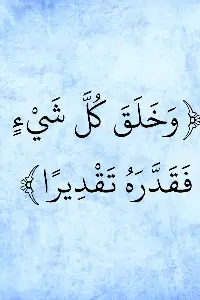 ﴿وَخَلَقَ كُلَّ شَيْءٍ
فَقَدَّرَهُ تَقْدِيرًا﴾